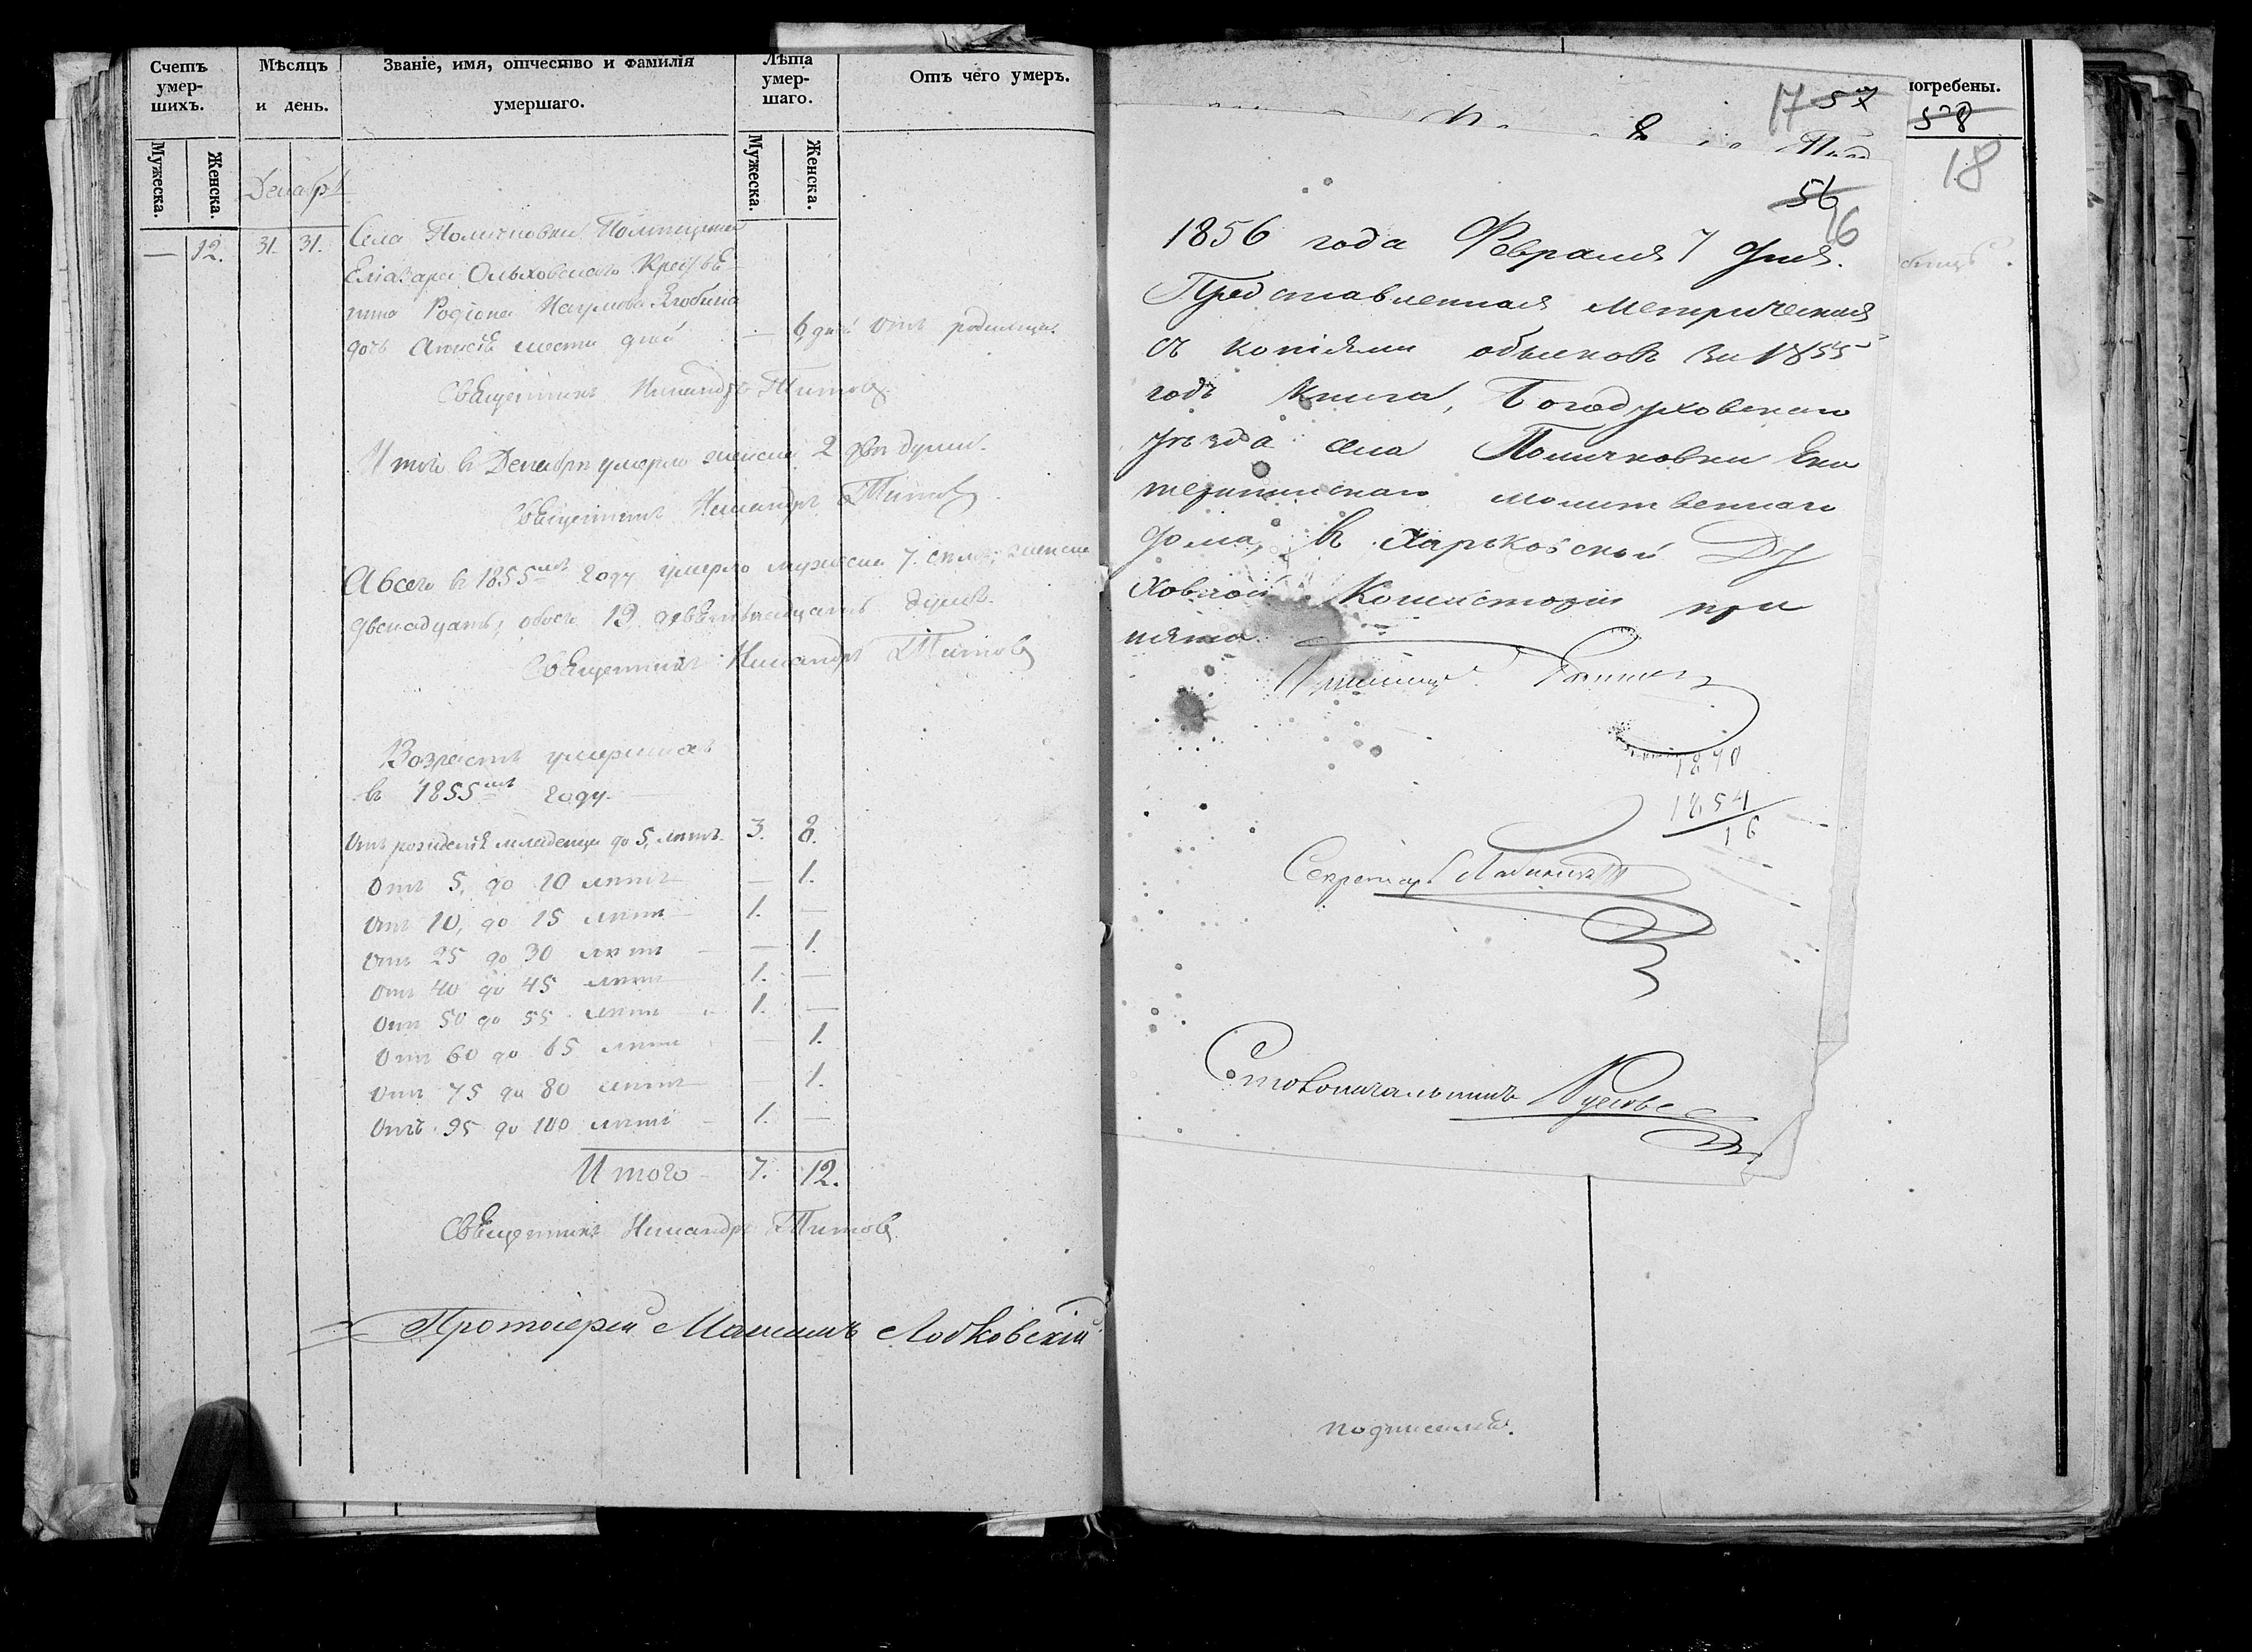 Счетъ умер-шихъ.
Мѣсяцъ и день.
Званіе, имя, отчество и фамилія умершаго.
Лѣта умер-шаго.
Отъ чего умеръ.
Мужеска.
Женска.
Мужеска.
Женска.
Декабрь
— 12. 31. 31.
Села Поличковки Помѣщика
Еліазара Ольховского Крестья-
нина Родіона Наумова
дочь шести дней — 6 дней отъ родимца.
Священникъ Никандръ Титовъ
Итого въ Декабрѣ умерло женска 2 две души.
Священникъ Никандръ Титовъ
А всего въ 1855мъ году умерло мужеска 7. семь, женска
двенадцать, обоего 19 девятнадцать душъ.
Священникъ Никандръ Титовъ
Возрастъ умершихъ
въ 1855мъ году.
Отъ рожденія младенца до 5, лѣтъ. 3. 8.
Отъ 5, до 10 лѣтъ — 1.
Отъ 10, до 15 лѣтъ 1. —
Отъ 25 до 30 лѣтъ — 1.
Отъ 40 до 45 лѣтъ 1. —
Отъ 50 до 55 лѣтъ 1. —
Отъ 60 до 65 лѣтъ — 1.
Отъ 75 до 80 лѣтъ — 1.
Отъ 95 до 100 лѣтъ 1. —
Итого 7. 12.
Священникъ Никандръ Титовъ
Протоіерей Максимъ Лобковскій
погребены.
17 57
58
18
56
16
1856 года Февраля 7 дня.
Представленная метрическая
съ копіями обысковъ за 1855
годъ книга, Богодуховскаго
уѣзда села Поличковки Ека
терининскаго молитвеннаго
дома, въ Харьковской Ду
ховной Консисторіи при
нята.
1870
1854
16
Секретарь
Столоначальникъ
подписался.